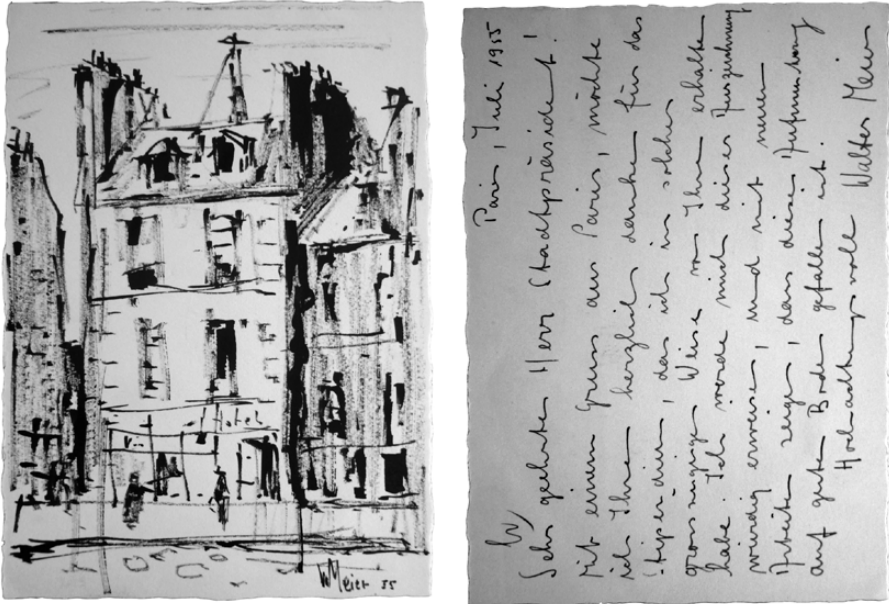 Hotel
WMeier. 55
Paris, Juli 1955
Sehr geehrter Herr Stadtpräsident!
Mit einem Gruss aus Paris, möchte
ich Ihnen herzlich danken für das
Stipendium, das ich in solcher
grosszügiger Weise von Ihnen erhalten
habe. Ich werde mich dieser Auszeichnung
würdig erweisen, und mit neuen
Arbeiten zeigen, dass diese Aufmunterung
auf guten Boden gefallen ist.
Hochachtungsvoll Walter Meier